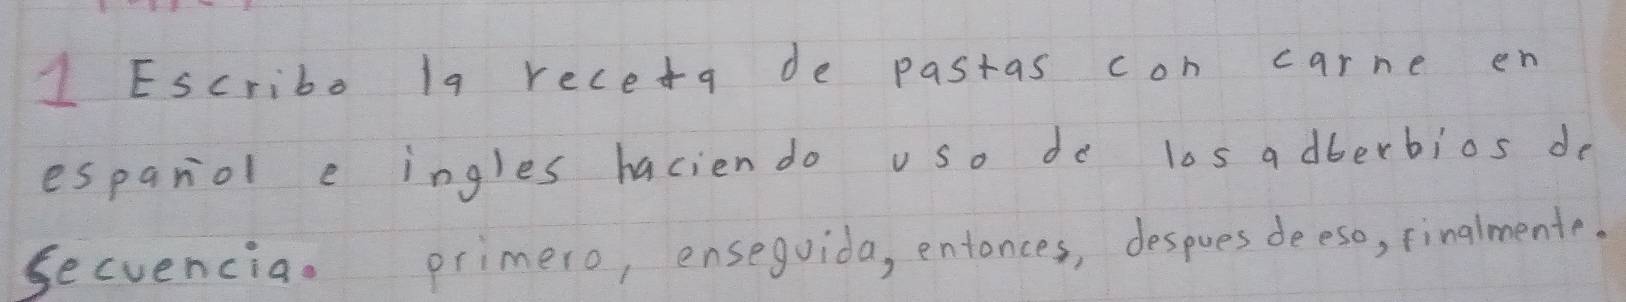 1 Escribo la receta de pastas con carne en
español e ingles haciendo uso de los adberbios de
secuencia. primero, enseguida, entonces, despues de eso, finalmente.